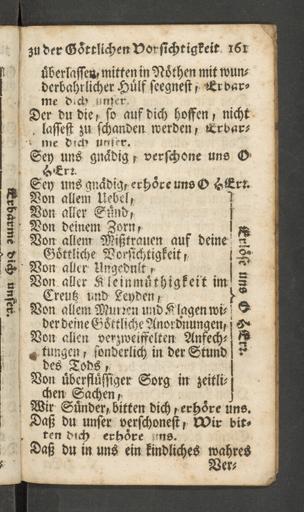 zu der Göttlichen Vorsichtigkeit. 161
überlassen, mitten in Nöthen mit wun-
derbahrlicher Hülf seegnest, Erbar-
me dich unser.
Der du die, so auf dich hoffen, nicht
lassest zu schanden werden, Erbar-
me dich unser.
Sey uns gnädig, verschone uns O
HErr.
Sey uns gnädig, erhöre uns O HErr.
Von allem Uebel,
Von aller Sünd,
Von deinem Zorn,
Von allem Mißtrauen auf deine
Göttliche Vorsichtigkeit,
Von aller Ungedult,
Von aller Kleinmüthigkeit im
Creutz und Leyden,
Von allem Murren und Klagen wi-
der deine Göttliche Anordnungen,
Von allen verzweiffelten Anfech-
tungen, sonderlich in der Stund
des Tods,
Von überflüssiger Sorg in zeitli-
chen Sachen,
Erlöse uns O HErr.
Wir Sünder, bitten dich, erhöre uns.
Daß du unser verschonest, Wir bit-
ten dich erhöre uns.
Daß du in uns ein kindliches wahres
Ver-
Erbarme dich unser.